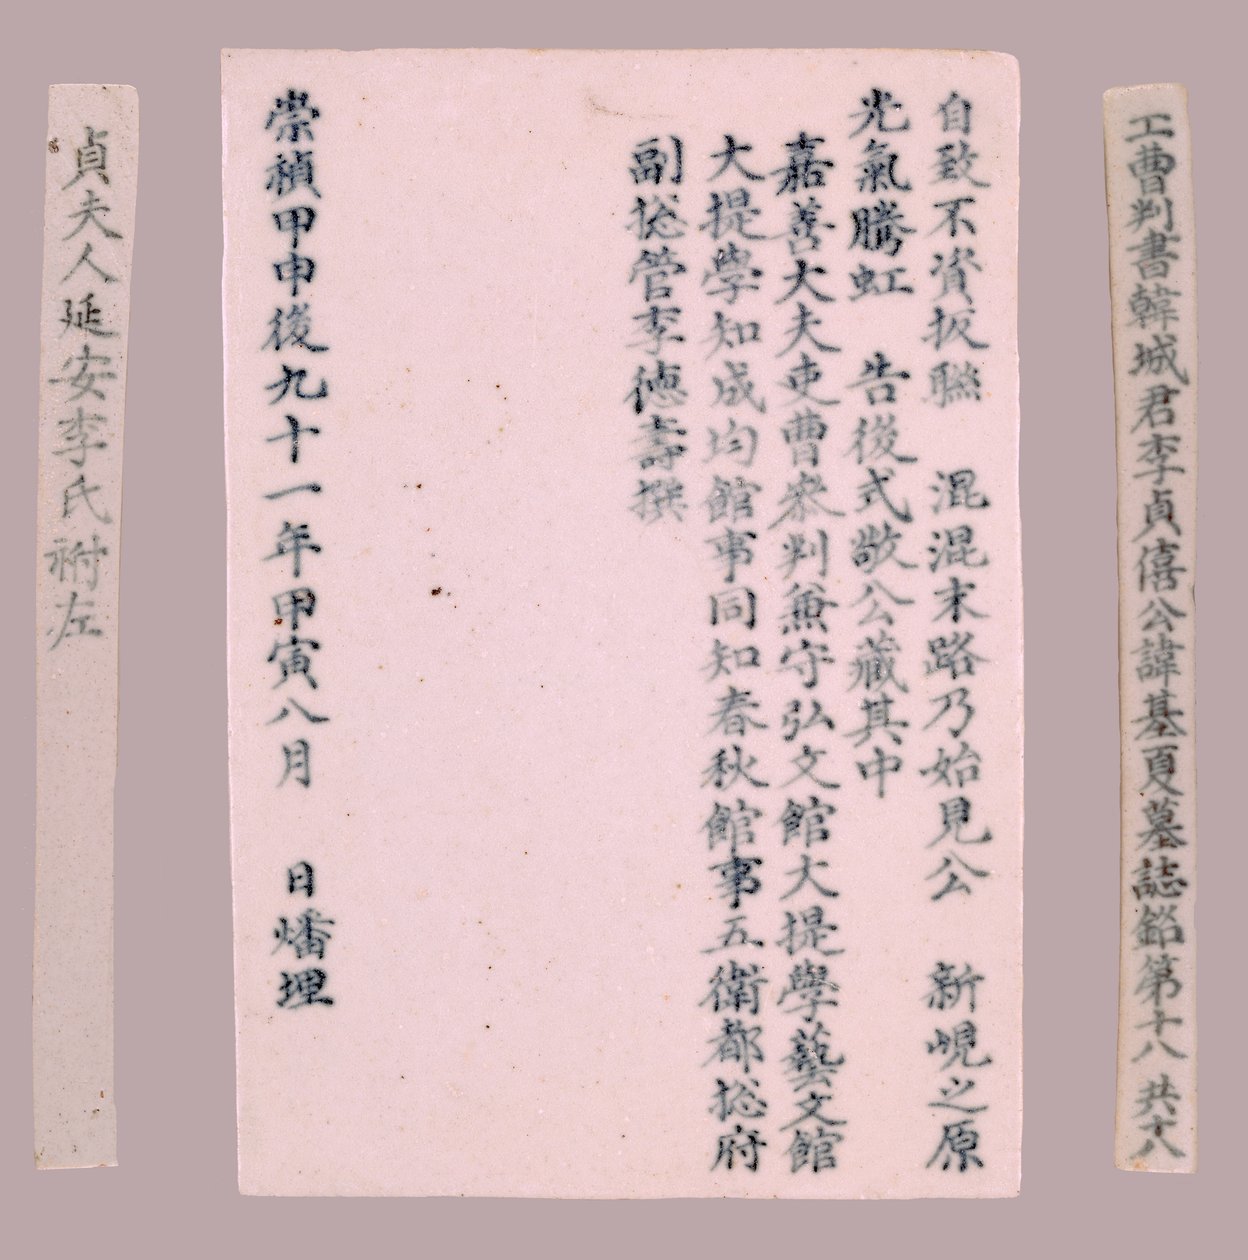 工曹判書韓城君李貞僖公諱基夏墓誌銘第十八 共十八
自致不資扳聮 混混末路乃始見公 新峴之原
光氣騰虹 告後式敬公藏其中
嘉善大夫吏曹叅判兼守弘文館大提學藝文館
大提學知成均館事同知春秋館事五衛都捴府
副捴管李德壽撰
崇禎甲申後九十一年甲寅八月 日燔埋
貞夫人延安李氏祔左